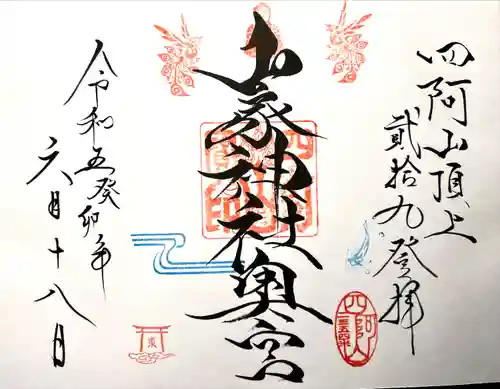 四阿山頂上
貳拾九登拝
山家神社奥宮
令和五癸卯年
六月十八日
四阿山